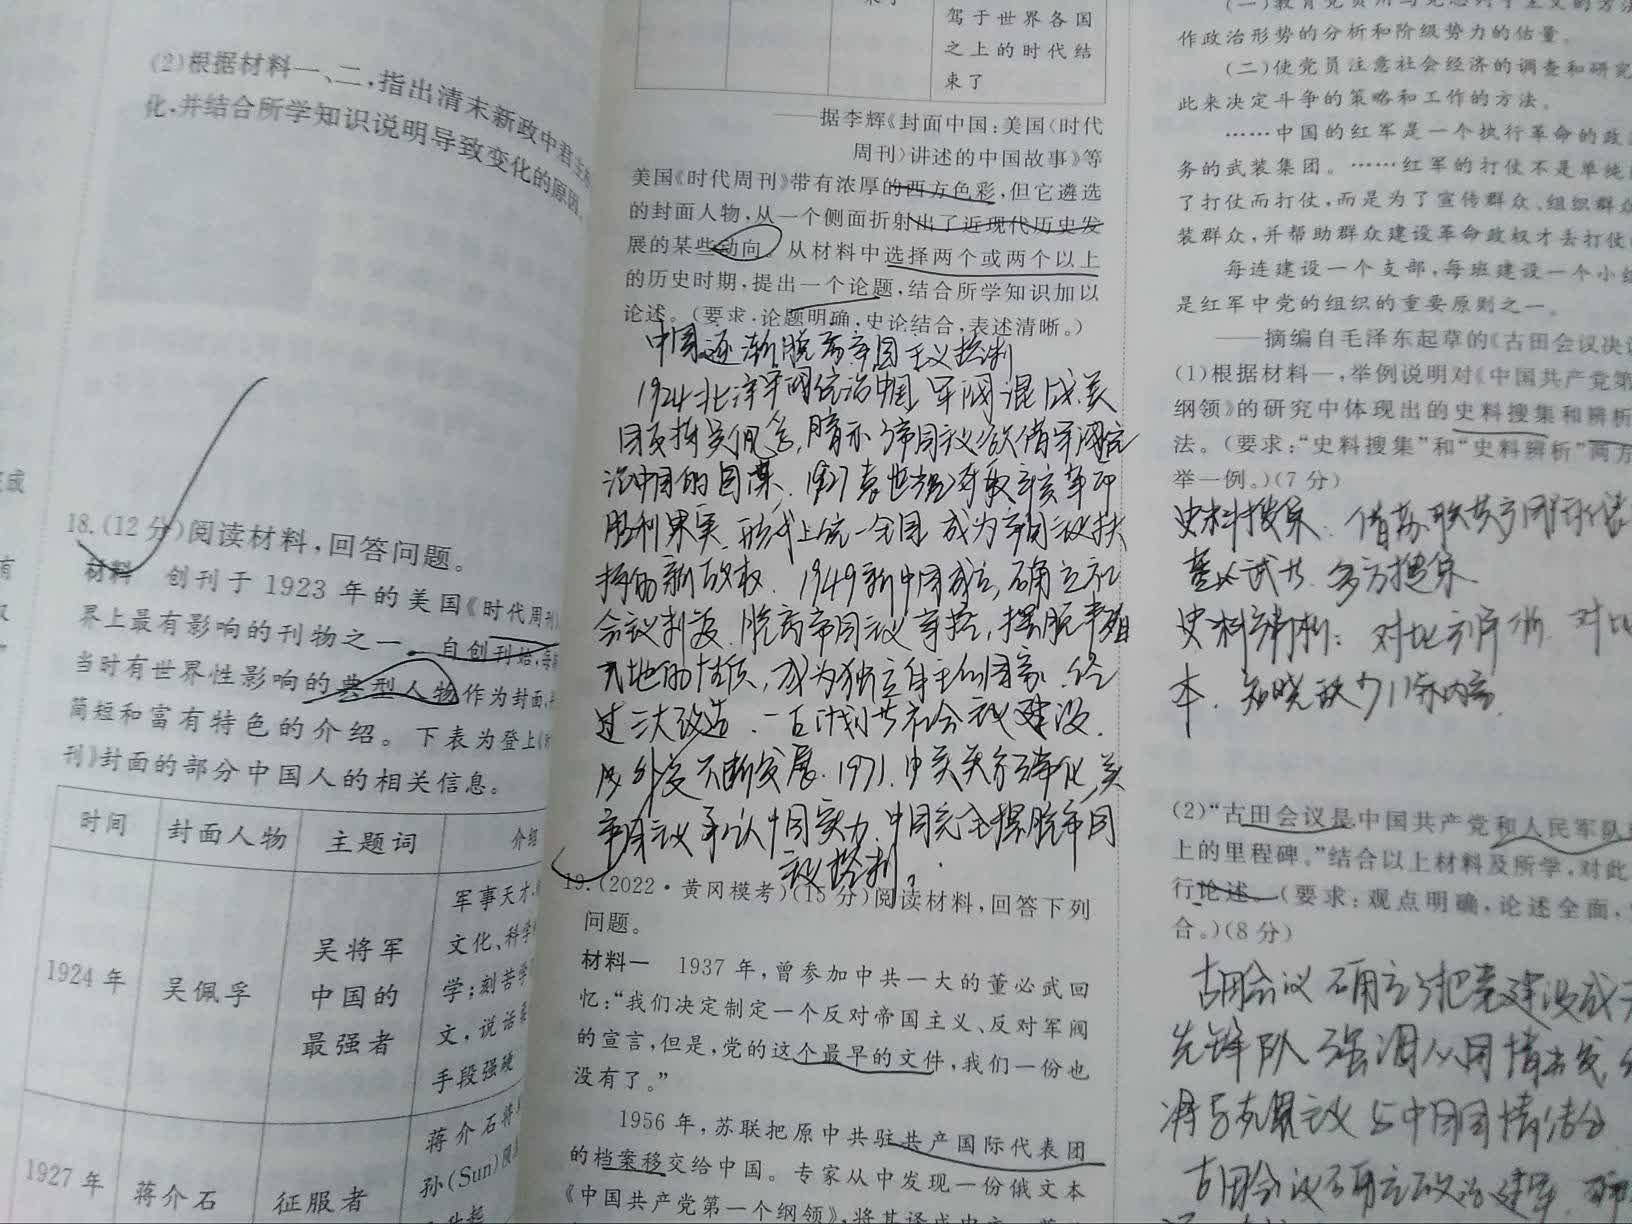 (2)根据材料一、二,指出清末新政中君主
化,并结合所学知识说明导致变化的原因。
18.(12分)阅读材料,回答问题。
材料 创刊于1923年的美国《时代周刊
界上最有影响的刊物之一。自创刊始,每
当时有世界性影响的典型人物作为封面,
简短和富有特色的介绍。下表为登上《时
刊》封面的部分中国人的相关信息。
时间 封面人物 主题词 介绍
1924年 吴佩孚 吴将军中国的最强者
军事天才,
文化、科学
学;刻苦学
文,说话
手段强硬
1927年 蒋介石 征服者
蒋介石将
孙(Sun)
驾于世界各国
之上的时代结
束了
——据李辉《封面中国:美国〈时代
周刊〉讲述的中国故事》等
美国《时代周刊》带有浓厚的西方色彩,但它遴选
的封面人物,从一个侧面折射出了近现代历史发
展的某些动向。从材料中选择两个或两个以上
的历史时期,提出一个论题,结合所学知识加以
论述。(要求:论题明确,史论结合,表述清晰。)
中国逐渐脱离帝国主义控制
1924北洋军阀统治中国,军阀混战,美
国支持吴佩孚,暗示了帝国主义欲借军阀统
治中国的图谋,1927
胜利果实,形式上统一全国,成为帝国主义扶
持的新政权,1949新中国成立,确立社
会主义制度,脱离帝国主义掌控,摆脱半殖
民地的性质,成为独立自主的国家,经
过三大改造,一五计划
外交不断发展,1971,中美关系缓和,美
帝国主义承认中国实力,中国完全摆脱帝国
主义控制。
19.(2022·黄冈模考)(15分)阅读材料,回答下列
问题。
材料一 1937年,曾参加中共一大的董必武回
忆:“我们决定制定一个反对帝国主义、反对军阀
的宣言,但是,党的这个最早的文件,我们一份也
没有了。”
1956年,苏联把原中共驻共产国际代表团
的档案移交给中国。专家从中发现一份俄文本
《中国共产党第一个纲领》,将其译成中文。
作政治形势的分析和阶级势力的估量。
(二)使党员注意社会经济的调查和研究
此来决定斗争的策略和工作的方法。
……中国的红军是一个执行革命的政
务的武装集团。……红军的打仗不是单纯
了打仗而打仗,而是为了宣传群众、组织群众
装群众,并帮助群众建设革命政权才去打仗
每连建设一个支部,每班建设一个小组
是红军中党的组织的重要原则之一。
——摘编自毛泽东起草的《古田会议决议
(1)根据材料一,举例说明对《中国共产党第
纲领》的研究中体现出的史料搜集和辨析
法。(要求:“史料搜集”和“史料辨析”两方
举一例。)(7分)
史料搜集:借苏联
董必武
多方搜集
史料辨析:对比
本,知晓缺少11条内容
(2)“古田会议是中国共产党和人民军队
上的里程碑。”结合以上材料及所学,对此
行论述。(要求:观点明确,论述全面,
合。)(8分)
古田会议确立了把党建设成
先锋队,强调从国情出发,
将马克思主义与中国国情结合
古田会议确立政治建军